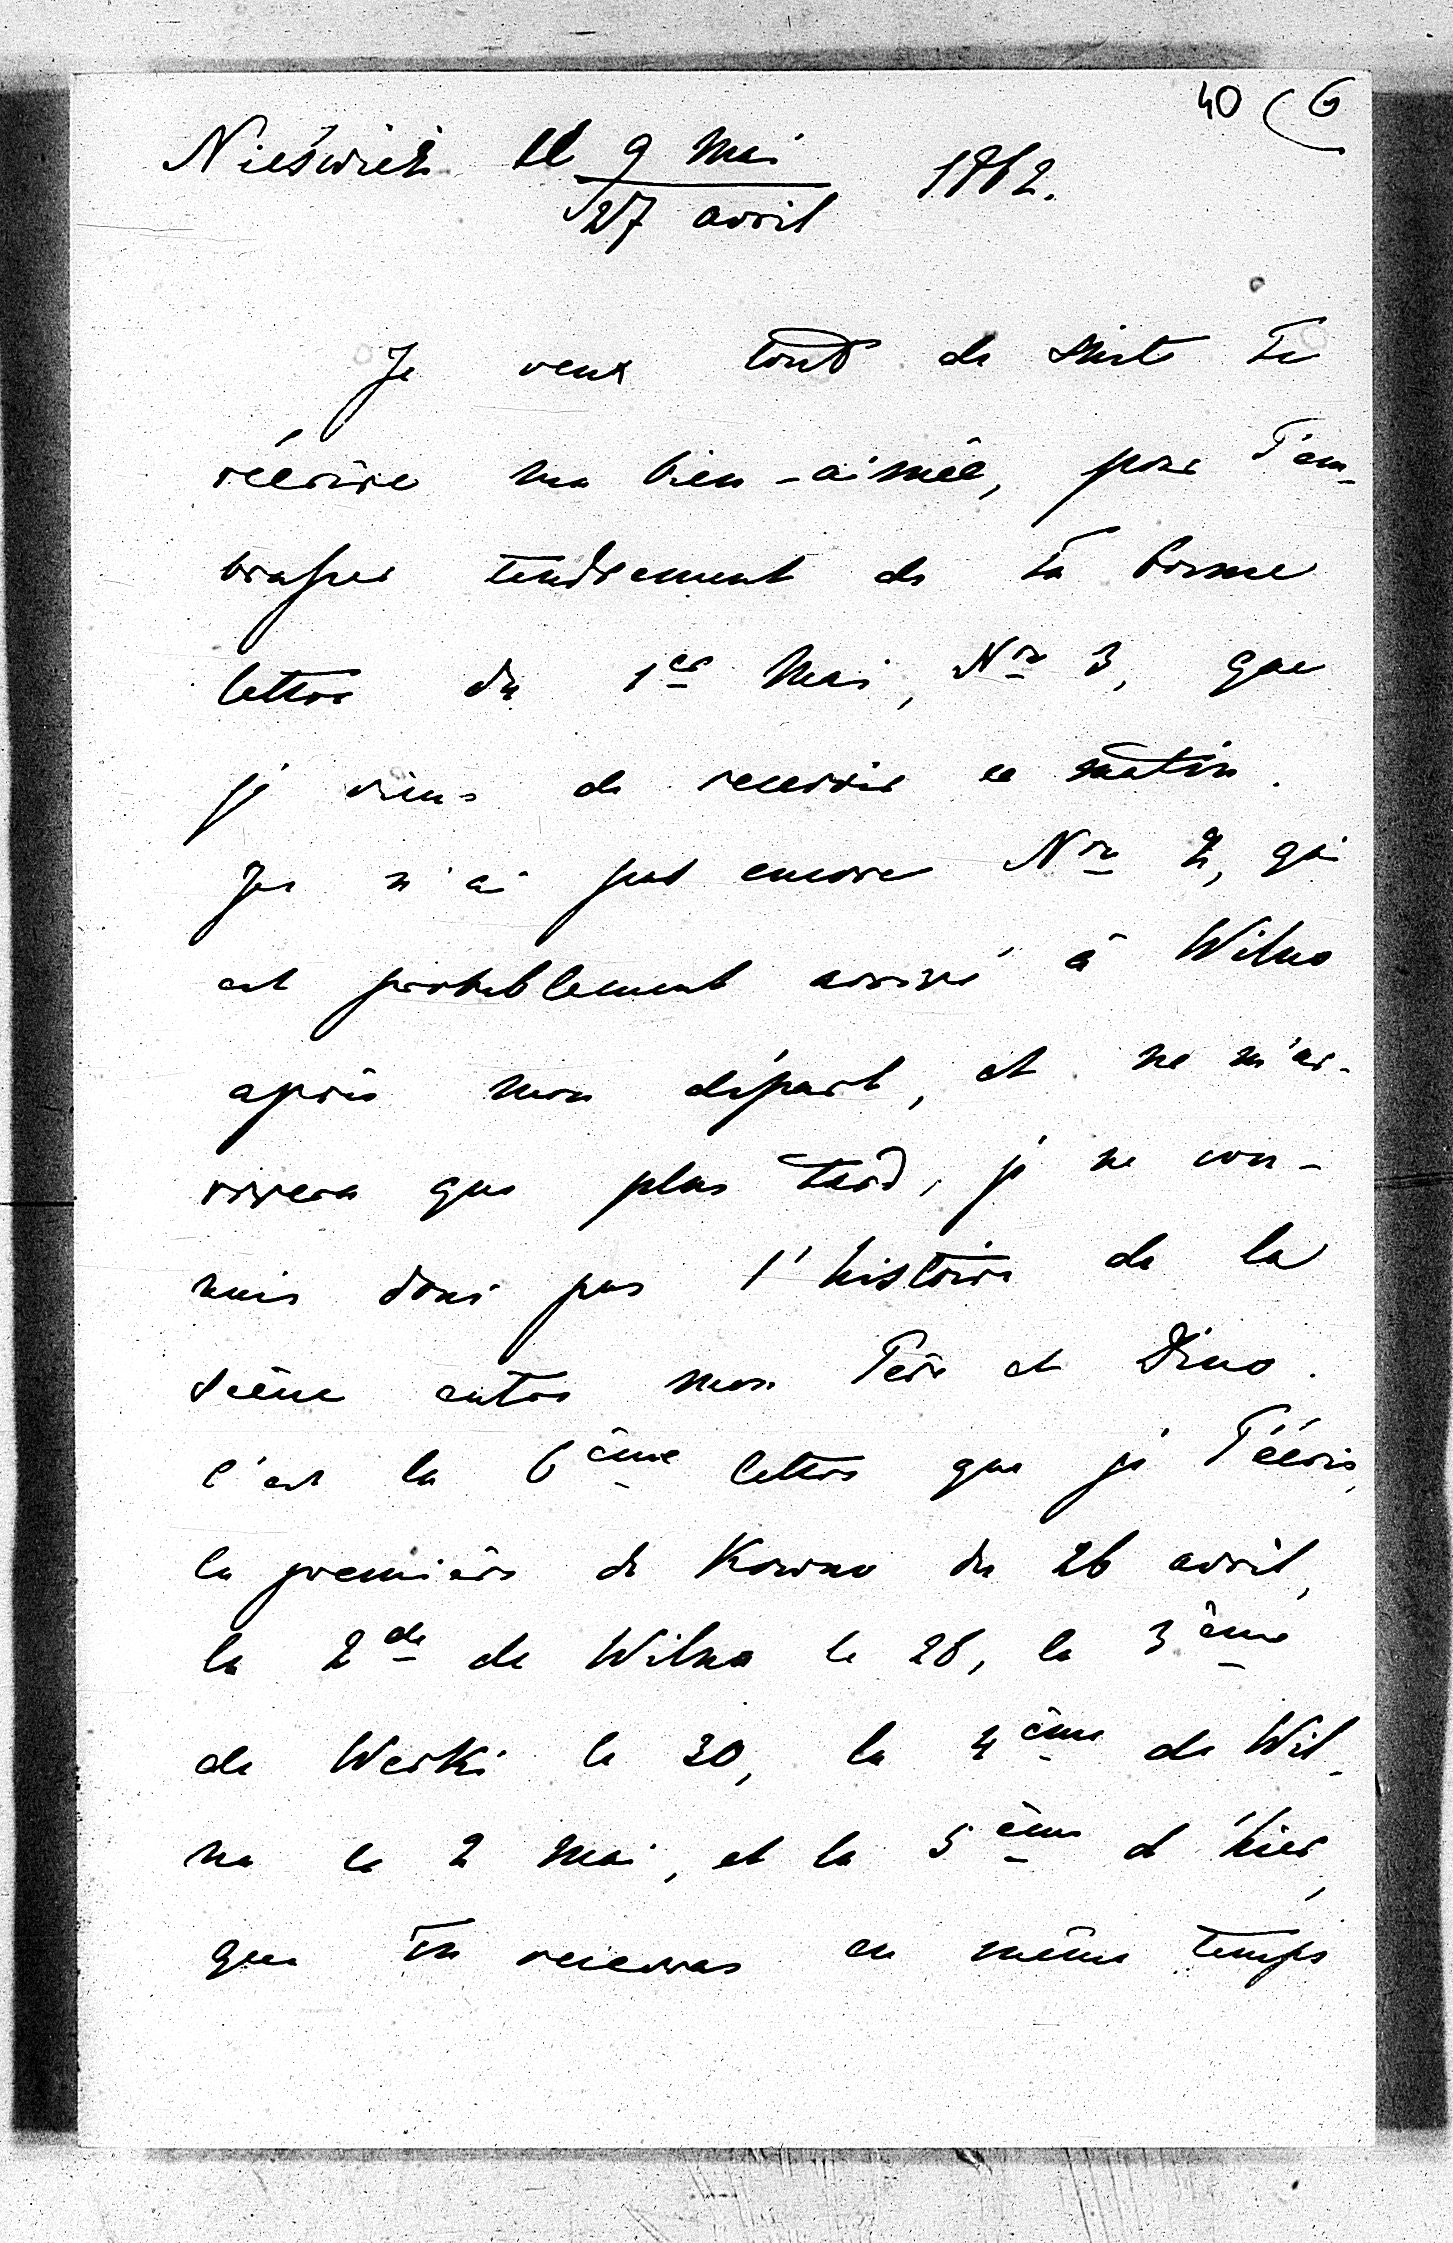 40 (6
Nieświeź le 9 Mai 1862.
27 avril
Je veux tout de suite te
réécrire ma bien-aimée, pour T'em-
brasser tendrement de ta bonne
lettre du 1er Mai, Nro 3, que
je viens de recevoir ce matin.
Je n'ai pas encore Nro 2, qui
est probablement arrivé à Wilno
après mon départ, et ne m'ar-
rivera que plus tard, je ne con-
nais donc pas l'histoire de la
scène entre mon Père et Dino.
C'est la 6ème lettre que je T'écris,
la première de Kowno du 26 avril,
la 2de de Wilna le 28, la 3ème
de Werki le 30, la 4ème de Wil-
na le 2 Mai, et la 5ème d'hier,
que tu recevras en même temps